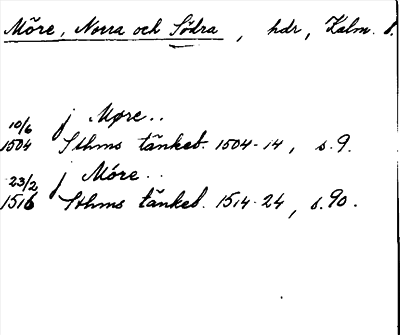 Möre, Norra och Södra, hdr, Kalm. l.
10/6 j Møre..
1504 Sthms tänkeb. 1504-14, s.9.
23/2 j Möre..
1516 Sthms tänkeb. 1514-24, s.90.